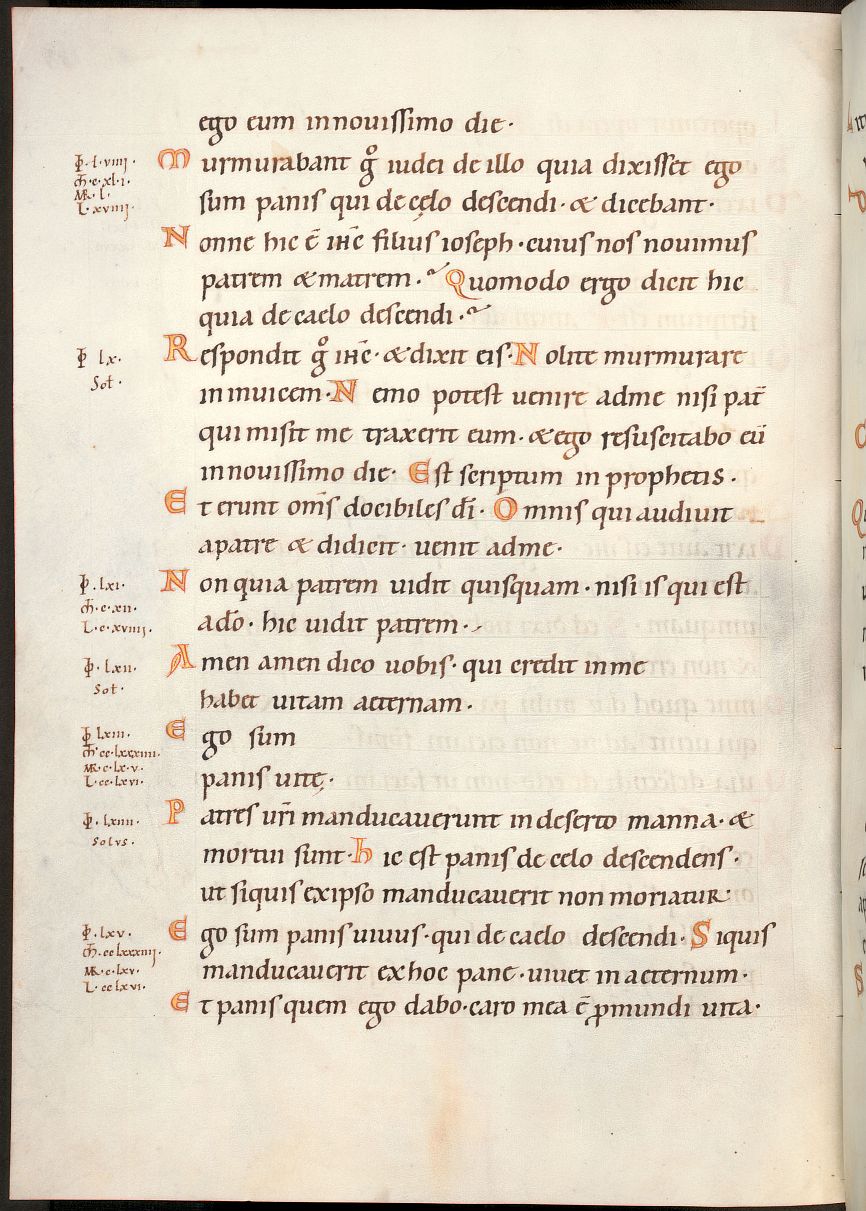 ego eum innouissimo die·
Murmurabant g̊ iudei de illo quia dixisset ego
sum panis qui de cęlo descendi· & dicebant·
Nonne hic ē ihc̄ filius ioseph· cuius nos nouimus
patrem & matrem· Quomodo ergo dicit hic
quia de caelo descendi·
Respondit g̊ ihc̄· & dixit eis· Nolite murmurare
inuicem· Nemo potest uenire adme nisi pat̄
qui misit me traxerit eum· & ego resuscitabo eū
innouissimo die· Est scriptum in prophetis·
Et erunt om̄s docibiles dī· Omnis qui audiuit
apatre & didicit· uenit adme·
Non quia patrem uidit quisquam· nisi is qui est
ado̅· hic uidit patrem·
Amen amen dico uobis· qui credit inme
habet uitam aeternam·
Ego sum
panis uitę·
Patres ur̄i manducauerunt in deserto manna· &
mortui sunt· hic est panis de celo descendens·
ut siquis exipso manducauerit non moriatur·
Ego sum panis uiuus· qui de caelo descendi· Siquis
manducauerit exhoc pane· uiuet in aeternum·
Et panis quem ego dabo· caro mea ē ꝓmundi uita·
l·viiii·
m̄·c·xl·i·
MR·l·
L·xviiii·
lx·
Sol·
·lxi·
m̄·c·xii·
L·c·xviiii·
·lxii·
Sol·
lxiii·
m̄ cc·lxxxiiii·
MR·c·lx·v·
L·cc·lxvi·
·lxiiii·
Solus·
·lxv·
m̄·cc lxxxiiii·
MR·c·lxv·
L·cc lxvi·